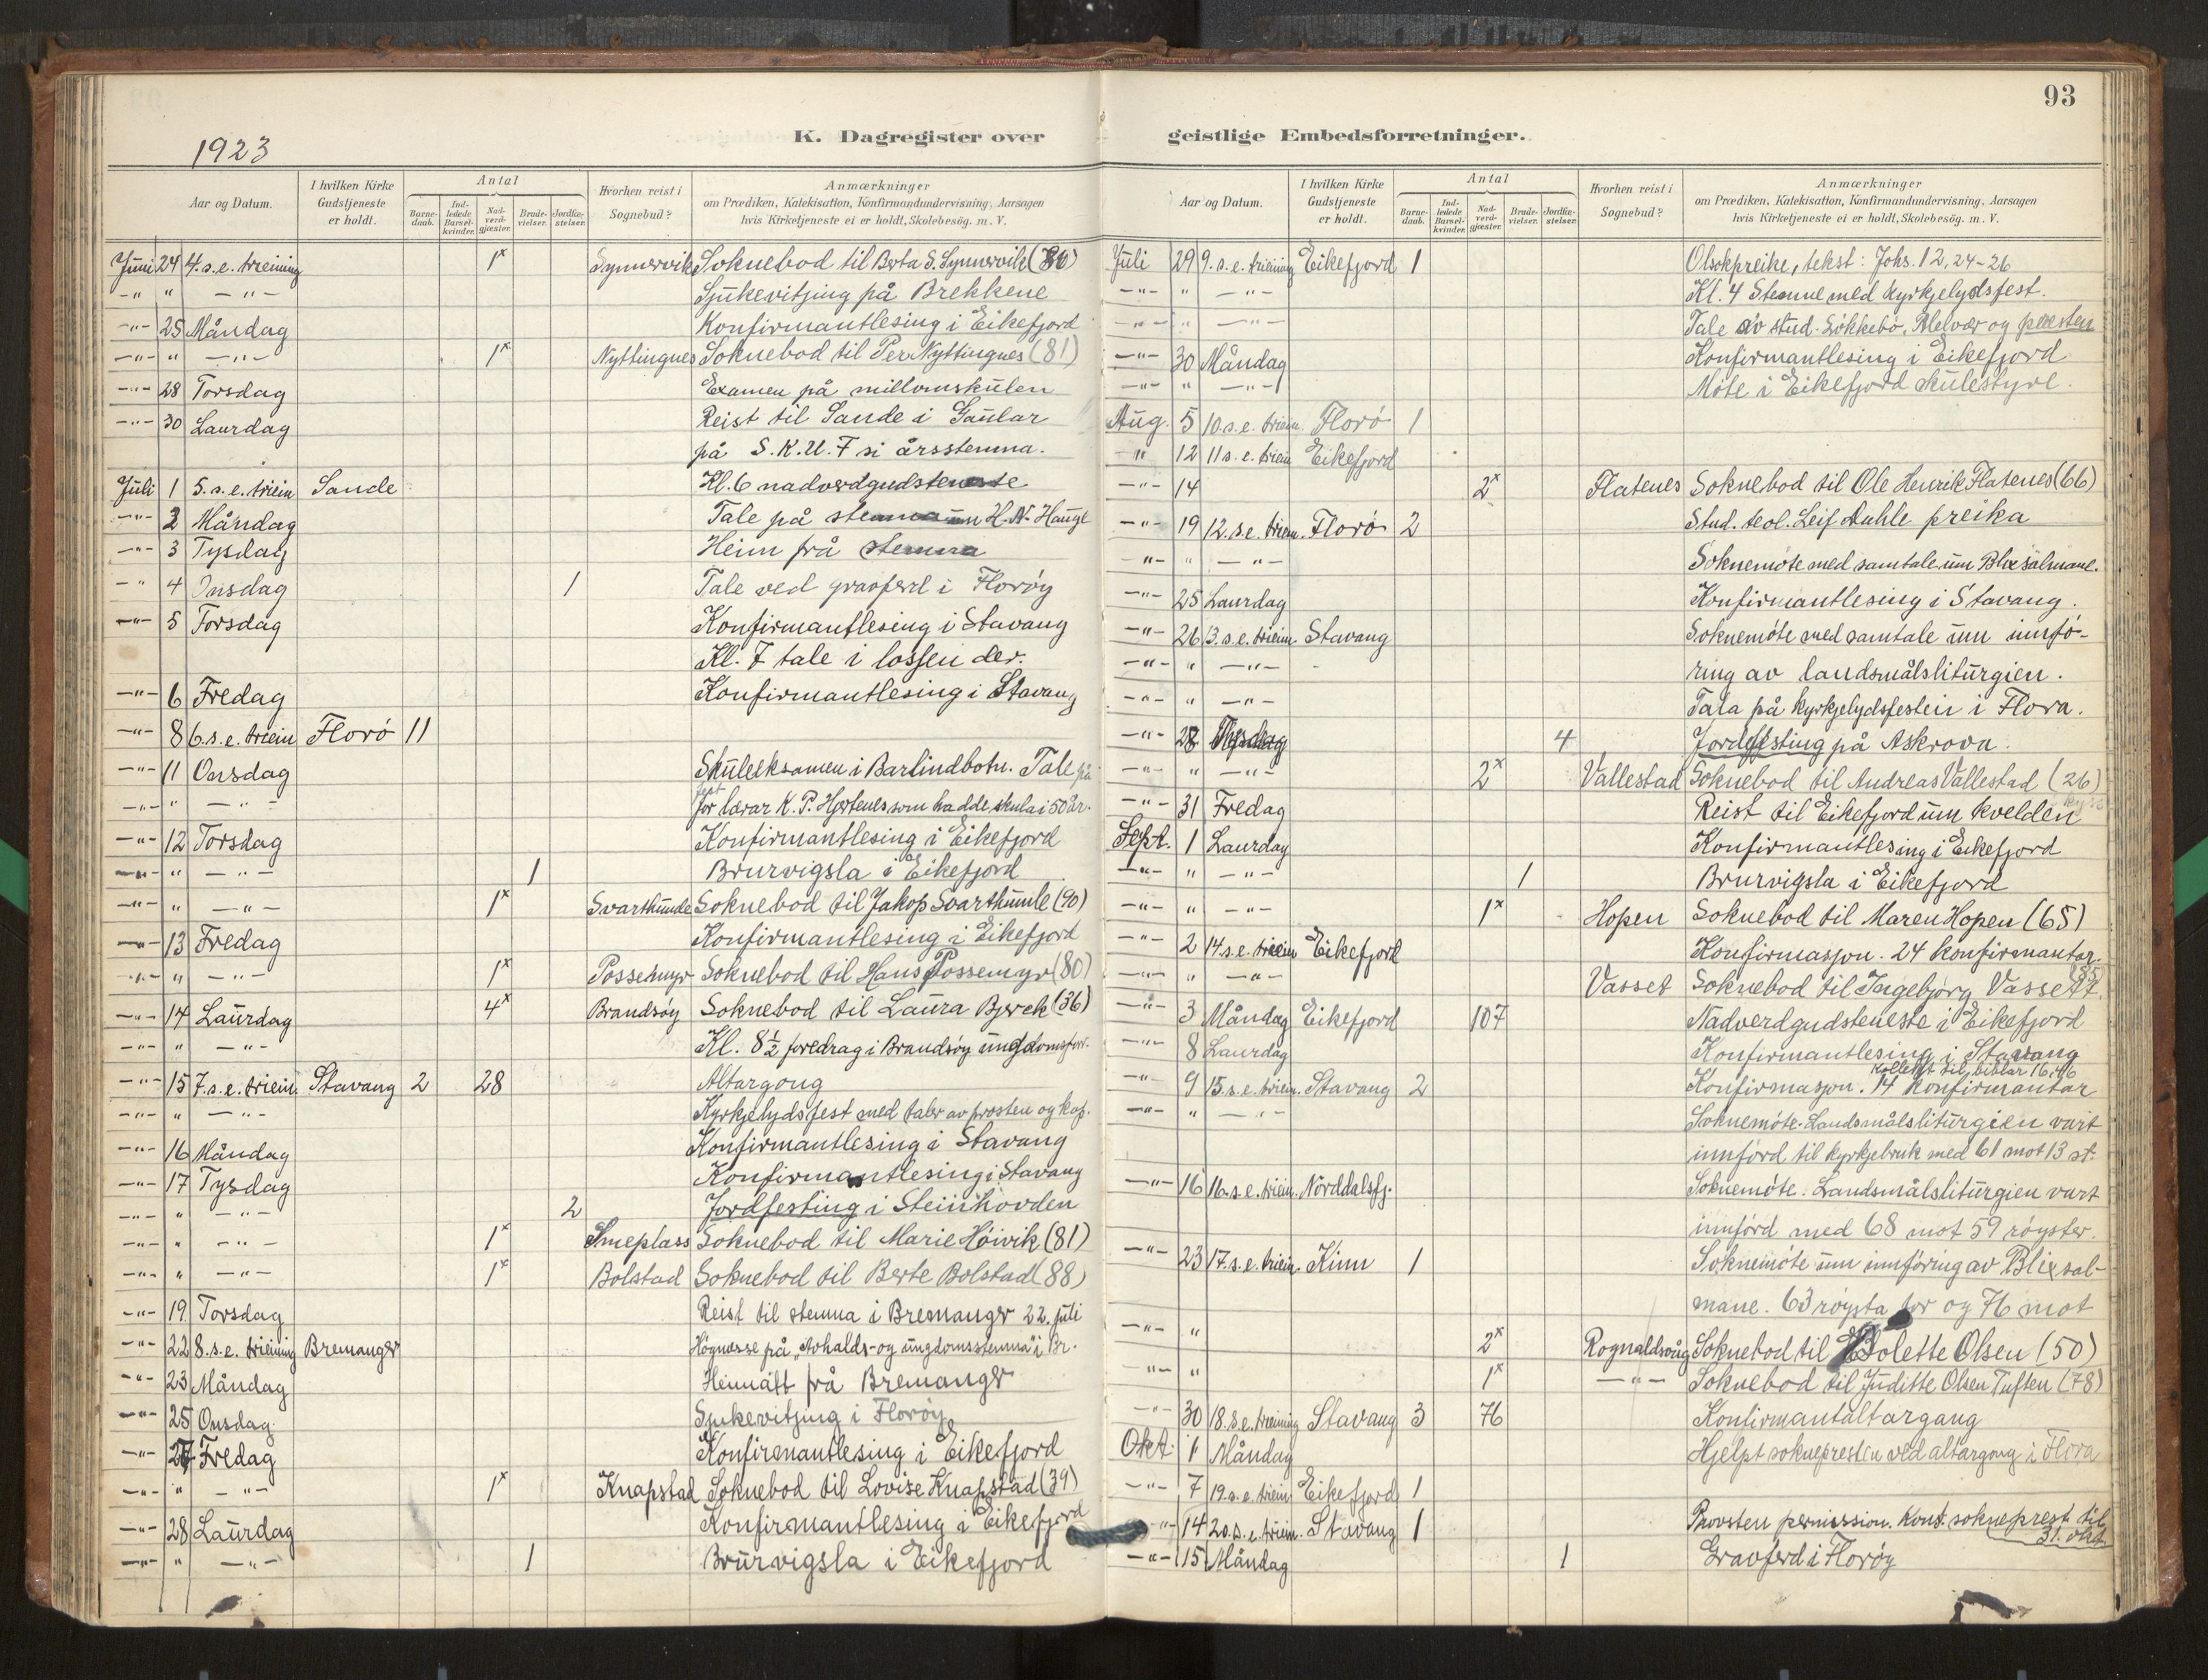 93
1923
K. Dagregister over
geistlige Embedsforretninger.
Aar og Datum. I hvilken Kirke Gudstjeneste er holdt. Antal Barnedaab. Indledede Barselkvinder. Nadverdgjæster. Brudevielser. Jordfæstelser. Hvorhen reist i Sognebud? Anmærkninger om Prædiken, Katekisation, Konfirmandundervisning, Aarsagen hvis Kirketjeneste ei er holdt, Skolebesøg. m. V.
Juni 24 4. s. e. treining 1x Synnervik Soknebod til Berta S. Synnervik (80)
-"- " -"- Sjukevitjing på Brekkene
-"- 25 Måndag Konfirmantlesing i Eikefjord
-"- " -"- 1x Nyttingnes Soknebod til Per Nyttingnes (81)
-"- 28 Torsdag Examen på millomskulen
-"- 30 Laurdag Reist til Sande i Gaular
på S.K.U.F si årsstemna.
Juli 1 5. s. e. triein Sande Kl. 6 nadverdgudsteneste
-"- 2 Måndag Tale på stemna um H. N. Hauge
-"- 3 Tysdag Heim frå stemna
-"- 4 Onsdag 1 Tale ved gravferd i Florøy
-"- 5 Torsdag Konfirmantlesing i Stavang
Kl. 7 tale i lossen der.
-"- 6 Fredag Konfirmantlesing i Stavang
-"- 8 6. s. e. triein Florø 11
-"- 11 Onsdag Skuleeksamen i Barlindbotn. Tale på
-"- " -"- fest for lærar K. P. Hjertenes som hadde skula i 50 år.
-"- 12 Torsdag Konfirmantlesing i Eikefjord
-"- " -"- 1 Brurvigsla i Eikefjord
-"- " -"- 1x Svarthumle Soknebod til Jakop Svarthumle (90)
-"- 13 Fredag Konfirmantlesing i Eikefjord
-"- " -"- 1x Possemyr Soknebod til Hans Possemyr (80)
-"- 14 Laurdag 4x Brandsøy Soknebod til Laura Bjerck (36)
-"- " -"- Kl. 8 1/2 foredrag i Brandsøy ungdomsfor.
-"- 15 7. s. e. triein. Stavang 2 28 Altargong
-"- " -"- Kyrkjelydsfest med talar av prosten og kap.
-"- 16 Måndag Konfirmantlesing i Stavang
-"- 17 Tysdag Konfirmantlesing i Stavang
-"- " -"- 2 Jordfesting i Steinhovden
-"- " -"- 1x Smeplass Soknebod til Marie Høivik (81)
-"- " -"- 1x Bolstad Soknebod til Berte Bolstad (88)
-"- 19 Torsdag Reist til stemna i Bremanger 22. juli
-"- 22 8. s. e. treining Bremanger Høgmesse på "Avhalds- og ungdomsstemna" i Br.
-"- 23 Måndag Heimatt frå Bremanger
-"- 25 Onsdag Sjukevitjing i Florøy
-"- 27 Fredag Konfirmantlesing i Eikefjord
-"- " -"- 1x Knapstad Soknebod til Lovise Knapstad (39)
-"- 28 Laurdag Konfirmantlesing i Eikefjord
-"- " -"- 1 Brurvigsla i Eikefjord
Aar og Datum. I hvilken Kirke Gudstjeneste er holdt. Antal Barnedaab. Indledede Barselkvinder. Nadverdgjæster. Brudevielser. Jordfæstelser. Hvorhen reist i Sognebud? Anmærkninger om Prædiken, Katekisation, Konfirmandundervisning, Aarsagen hvis Kirketjeneste ei er holdt, Skolebesøg. m. V.
Juli 29 9. s. e. treining Eikefjord 1 Olsokpreike, tekst: Johs. 12, 24-26
-"- " -"- Kl. 4 Stemne med kyrkjelydsfest.
-"- " -"- Tale av stud. Søkkebø, og presten
-"- 30 Måndag Konfirmantlesing i Eikefjord
-"- " -"- Møte i Eikefjord skulestyre.
Aug. 5 10. s. e. triein. Florø 1
" 12 11 s. e. triein Eikefjord
-"- 14 2x Flatenes Soknebod til Ole Henrik Flatenes (66)
-"- 19 12. s. e. triein. Florø 2 Stud. teol. Leif Muhle preika
-"- " -"- Soknemøte med samtale um Blix salmane.
-"- 25 Laurdag Konfirmantlesing i Stavang.
-"- 26 13. s. e. triein. Stavang Soknemøte med samtale um innfø-
-"- " -"- ring av landsmålsliturgien.
-"- " -"- Tala på kyrkjelydsfesten i Flora.
-"- 28 Tysdag 4 Jordfesting på Askrova.
-"- " -"- 2x Vallestad Soknebod til Andreas Vallestad (26)
-"- 31 Fredag Reist til Eikefjord um kvelden
Sept. 1 Laurdag Konfirmantlesing i Eikefjord
-"- " -"- 1 Brurvigsla i Eikefjord
-"- " -"- 1x Hopen Soknebod til Maren Hopen (65)
-"- 2 14. s. e. triein Eikefjord Konfirmasjon. 24 konfirmantar.
-"- " -"- Vasset Soknebod til Ingebjørg Vasset (85)
-"- 3 Måndag Eikefjord 107 Nadverdgudsteneste i Eikefjord
-"- 8 Laurdag Konfirmantlesing i Stavang
-"- 9 15. s. e. triein. Stavang 2 Konfirmasjon. 14 konfirmantar kollekt til biblar 16,46
-"- " -"- Soknemøte. Landsmålsliturgien vart
innførd til kyrkjebruk med 61 mot 13 st.
-"- 16 16. s. e. triein. Norddalsfj. Soknemøte. Landsmålsliturgien vart
innførd med 68 mot 59 røyster.
-"- 23 17. s. e. triein. Kinn 1 Soknemøte um innføring av Blix sal-
mane. 63 røysta for og 76 mot
-"- " 2x Rognaldsvåg Soknebod til Bolette Olsen (50)
-"- " 1x -"- Soknebod til Juditte Olsen Tuften (78)
-"- 30 18. s. e. treining Stavang 3 76 Konfirmantaltargang
Okt. 1 Måndag Hjelpt soknepresten ved altargong i Flora
-"- 7 19. s. e. triein Eikefjord 1
-"- 14 20. s. e. triein. Stavang 1 Provsten permission. Konst. sokneprest til 31. okt.
-"- 15 Måndag 1 Gravferd i Florøy